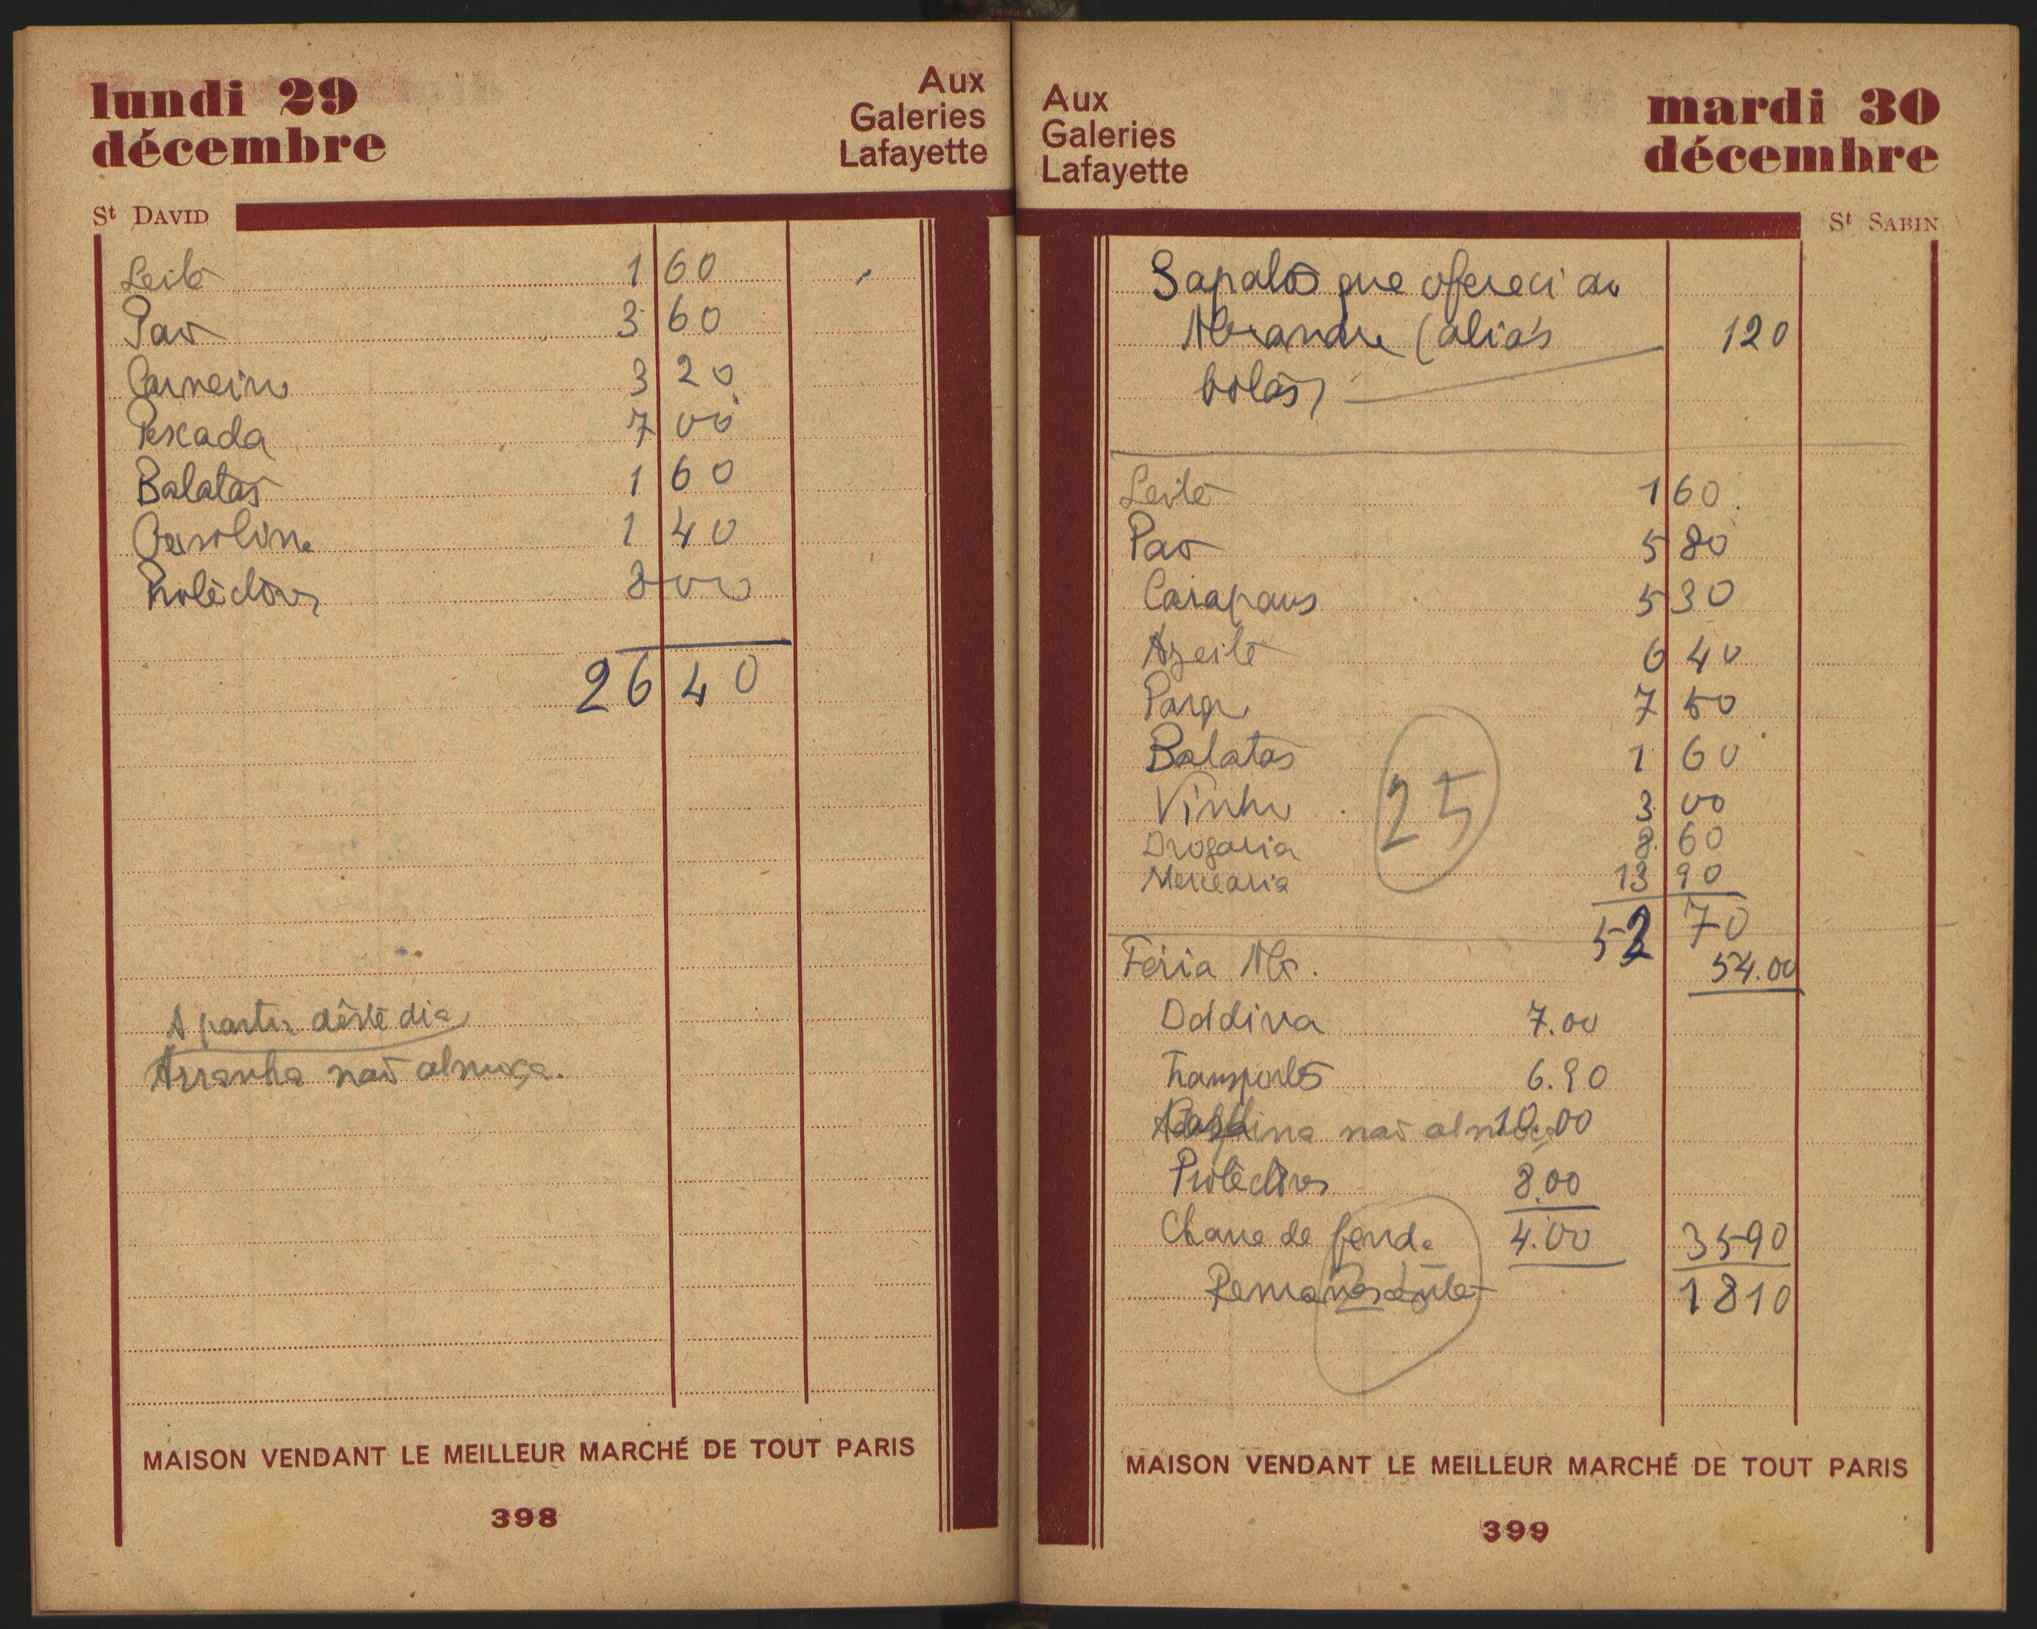 lundi 29
décembre
Aux
Galeries
Lafayette
St DAVID
Leite 1 60
Pão 3 60
Carneiro 3 20
Pescada 7 00
Batatas 1 60
Gasolina 1 40
Protèctores 8 00
26 40
A partir dêste dia
Arranha não almoça.
MAISON VENDANT LE MEILLEUR MARCHÉ DE TOUT PARIS
398
Aux
Galeries
Lafayette
mardi 30
décembre
St SABIN
Sapatos que ofereci ao
(aliás 120
botas)
Leite 1 60
Pão 5 80
Carapaus 5 30
Azeite 6 40
7 50
Batatas 1 60
Vinho 3 00
25
Drogaria 8 60
Mercearia 13 90
52 70
Féria 54.00
Dádiva 7.00
Transportes 6.90
não almoça 10.00
Protèctores 8.00
Chave de fenda 4.00 35 90
Remanescente 18 10
MAISON VENDANT LE MEILLEUR MARCHÉ DE TOUT PARIS
399